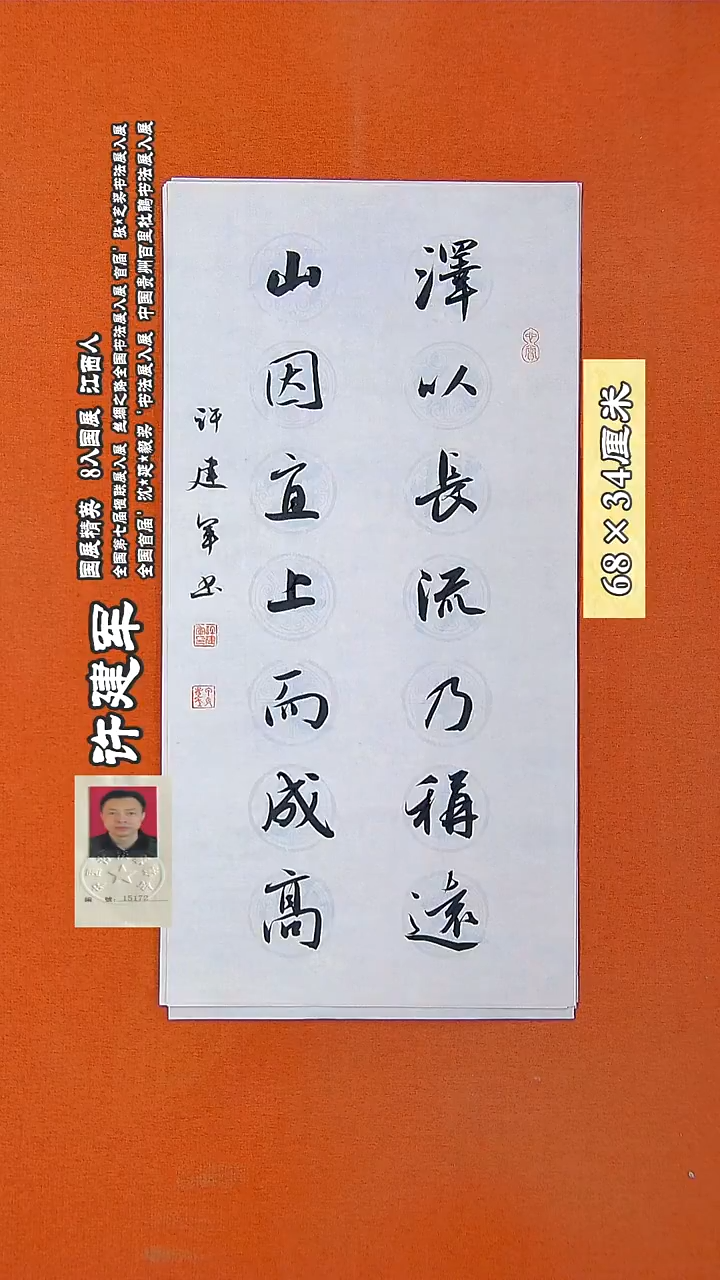 澤以長流乃稱遠
山因宜上而成高
许建军书
许建军
国展精英 8入国展 江西人
全国第七届楹联展入展 丝绸之路全国书法展入展 首届'张*芝奖书法展入展
全国首届'沈*延*毅奖'书法展入展 中国贵州百里杜鹃书法展入展
68×34厘米
15172